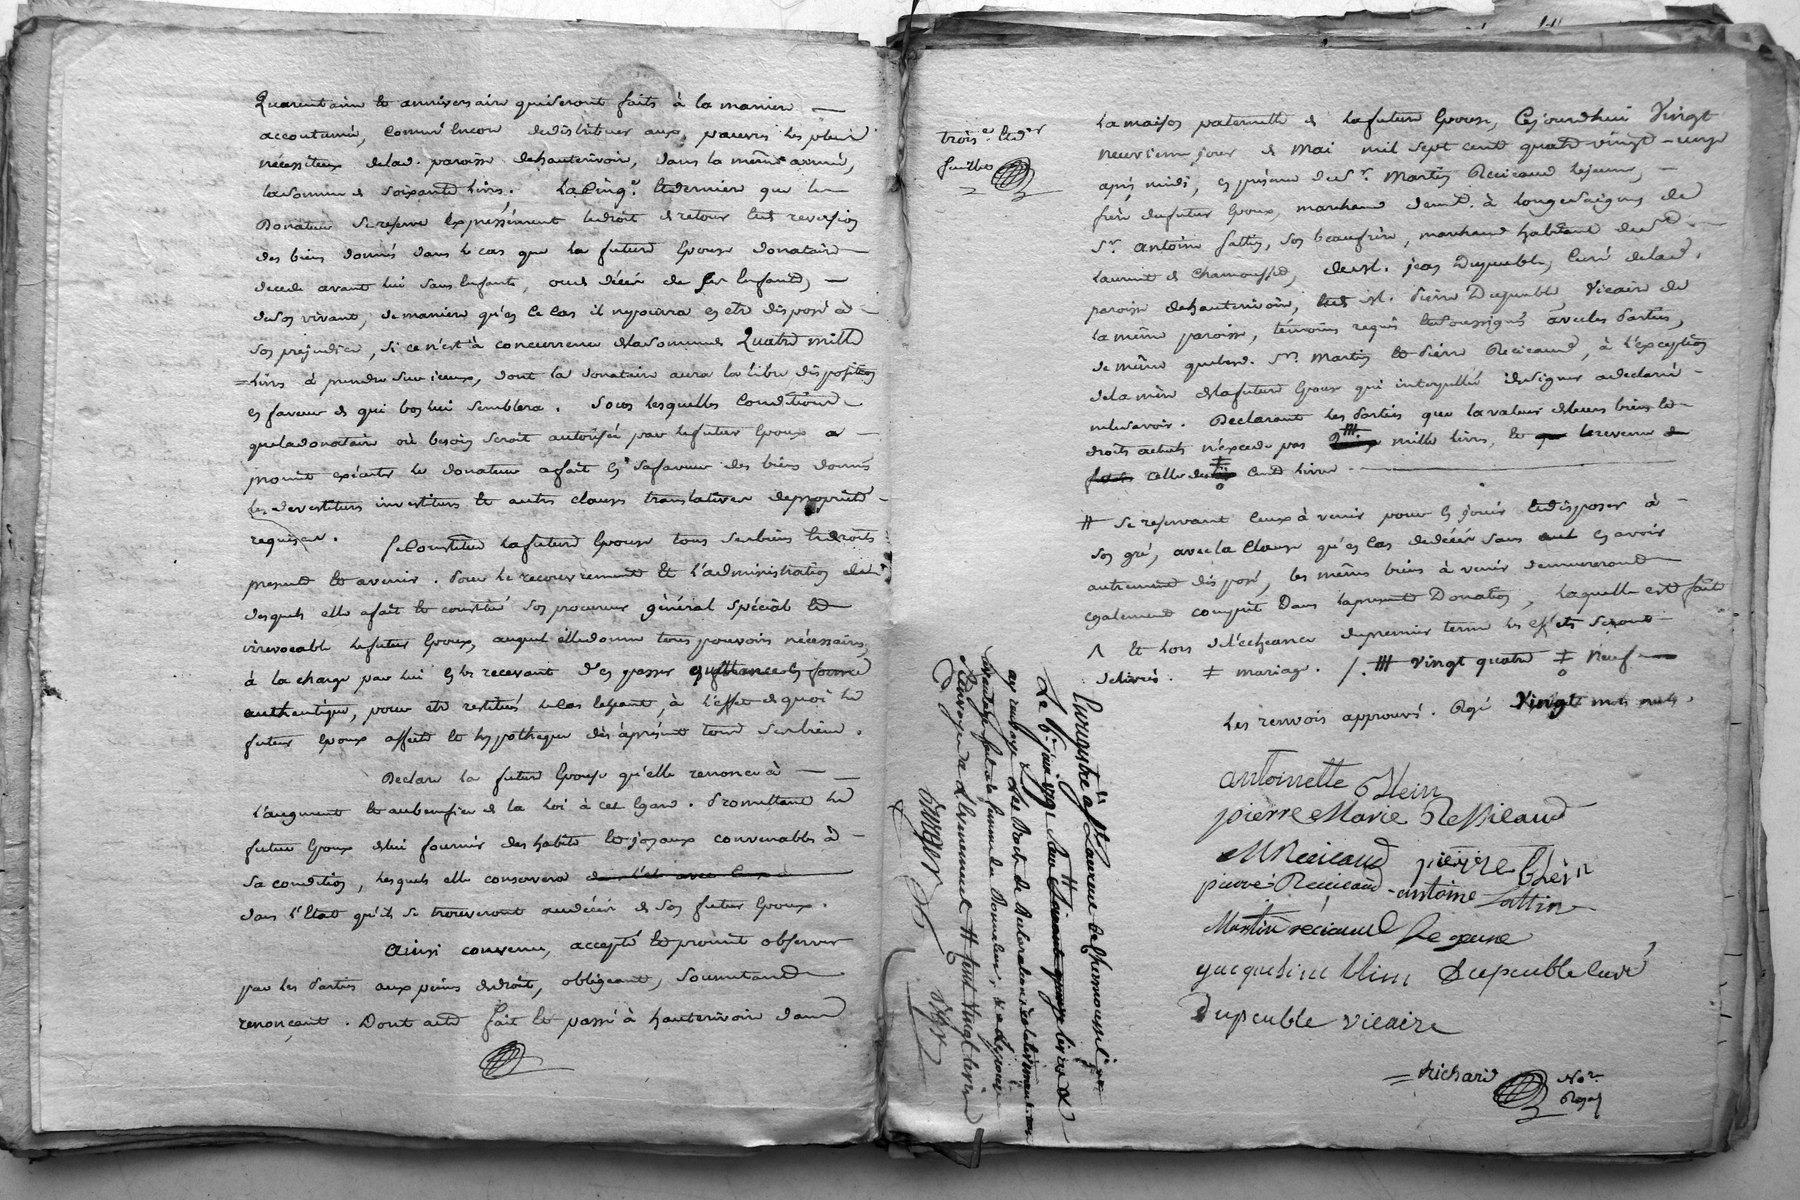 Quarentaine et anniversaire qui seront faits à la maniere
accoutumé, comm'encore de distribuer aux pauvres les plus
nécessiteux delad. paroisse dehauterivoire, dans la même année,
la somme de soixante livres. La cinq.e et derniere que le
Donateur se reserve expressément le droit de retour et de reversion
des biens donnés dans le cas que la future Epouse donataire
decede avant lui sans enfants, ou le décès de ses enfants,
de son vivant, de maniere qu'en ce cas il ne pourra en etre disposé à
son prejudice, si ce n'est à concurrence de la somme de Quatre mille
livres à prendre sur iceux, dont la donataire aura la libre disposition
en faveur de qui bon lui semblera. Sous lesquelles conditions
que la donataire où besoin seroit autorisée par le futur Epoux a
promit exécuter le donateur a fait en sa faveur des biens donnés
les devestitures investitures et autres clauses translatives de propriété
requises. Se Constitue la future Epouse tous ses biens et droits
presents et avenir. Pour le recouvrement et l'administration
desquels elle a fait et constitué son procureur général spécial et
irrevocable le futur Epoux, auquel elle donne tous pouvoirs nécessaires,
à la charge par lui en les recevant d'en passer quittance en forme
authentique, pour etre restitués le cas echeant, à l'effet de quoi le
futur Epoux affecte et hypotheque dès àprésent tous ses biens.
Declare la future Epouse qu'elle renonce à
l'augment et au benefice de la loi à cet egard. Promettant le
futur Epoux de lui fournir des habits et joyaux convenables à
sa condition, lesquels elle conservera
dans l'état qu'ils se trouveront au décès de son futur Epoux.
Ainsi convenu, accepté et promit observer
par les Parties aux peines de droit, obligeant, soumettant
renonçant. Dont acte fait et passé à hauterivoire dans
trois.e et d.r
feuillet
la maison paternelle de la future Epouse, Cejourdhui Vingt
neuvieme jour de Mai mil sept cent quatre vingt-onze
après midi, en présence de S.r Martin Recicaud lejeune,
frere du futur Epoux, marchand demt. à longessaigne de
S.r antoine fattin, son beaufrere, marchand habitant de St
Laurent de Chamousset, de M. jean Dupeuble, Curé de lad.
paroisse dehauterivoire, et de M. Pierre Dupeuble, Vicaire de
la même paroisse, témoins requis et soussignés avec les Parties,
de même que lesd. S.rs Martin et Pierre Recicaud, à l'exception
de la mère de la future Epouse qui interpellée de signer a declaré
ne le savoir. Declarant les Parties que la valeur de leurs biens et
droits actuels n'excede pas mille livres, et le revenu
celle de cent livres.
# Se reservant ceux à venir pour en jouir et disposer à
son gré, avec la clause qu'en cas de décès sans en avoir
autrement disposé, les mêmes biens à venir demeureront
egalement compris dans la presente Donation, laquelle est faite
Λ et lors de l'echeance du premier terme les effets seront
délivrés. ‡ mariage. /. #| vingt quatre ‡ neuf
Les renvois approuvés. Rayé Vingt mots nuls.
antoinette Blein
pierre Marie Ressicaud
MRecicaud pierre blein
pierre Recicaud antoine fattin
Martin recicaud Le jeune
jacqueline blein Dupeuble curé
Dupeuble vicaire
Richard No.re
Royal
Enregistré à St Laurent de Chamousset
Le 6 juin 1791